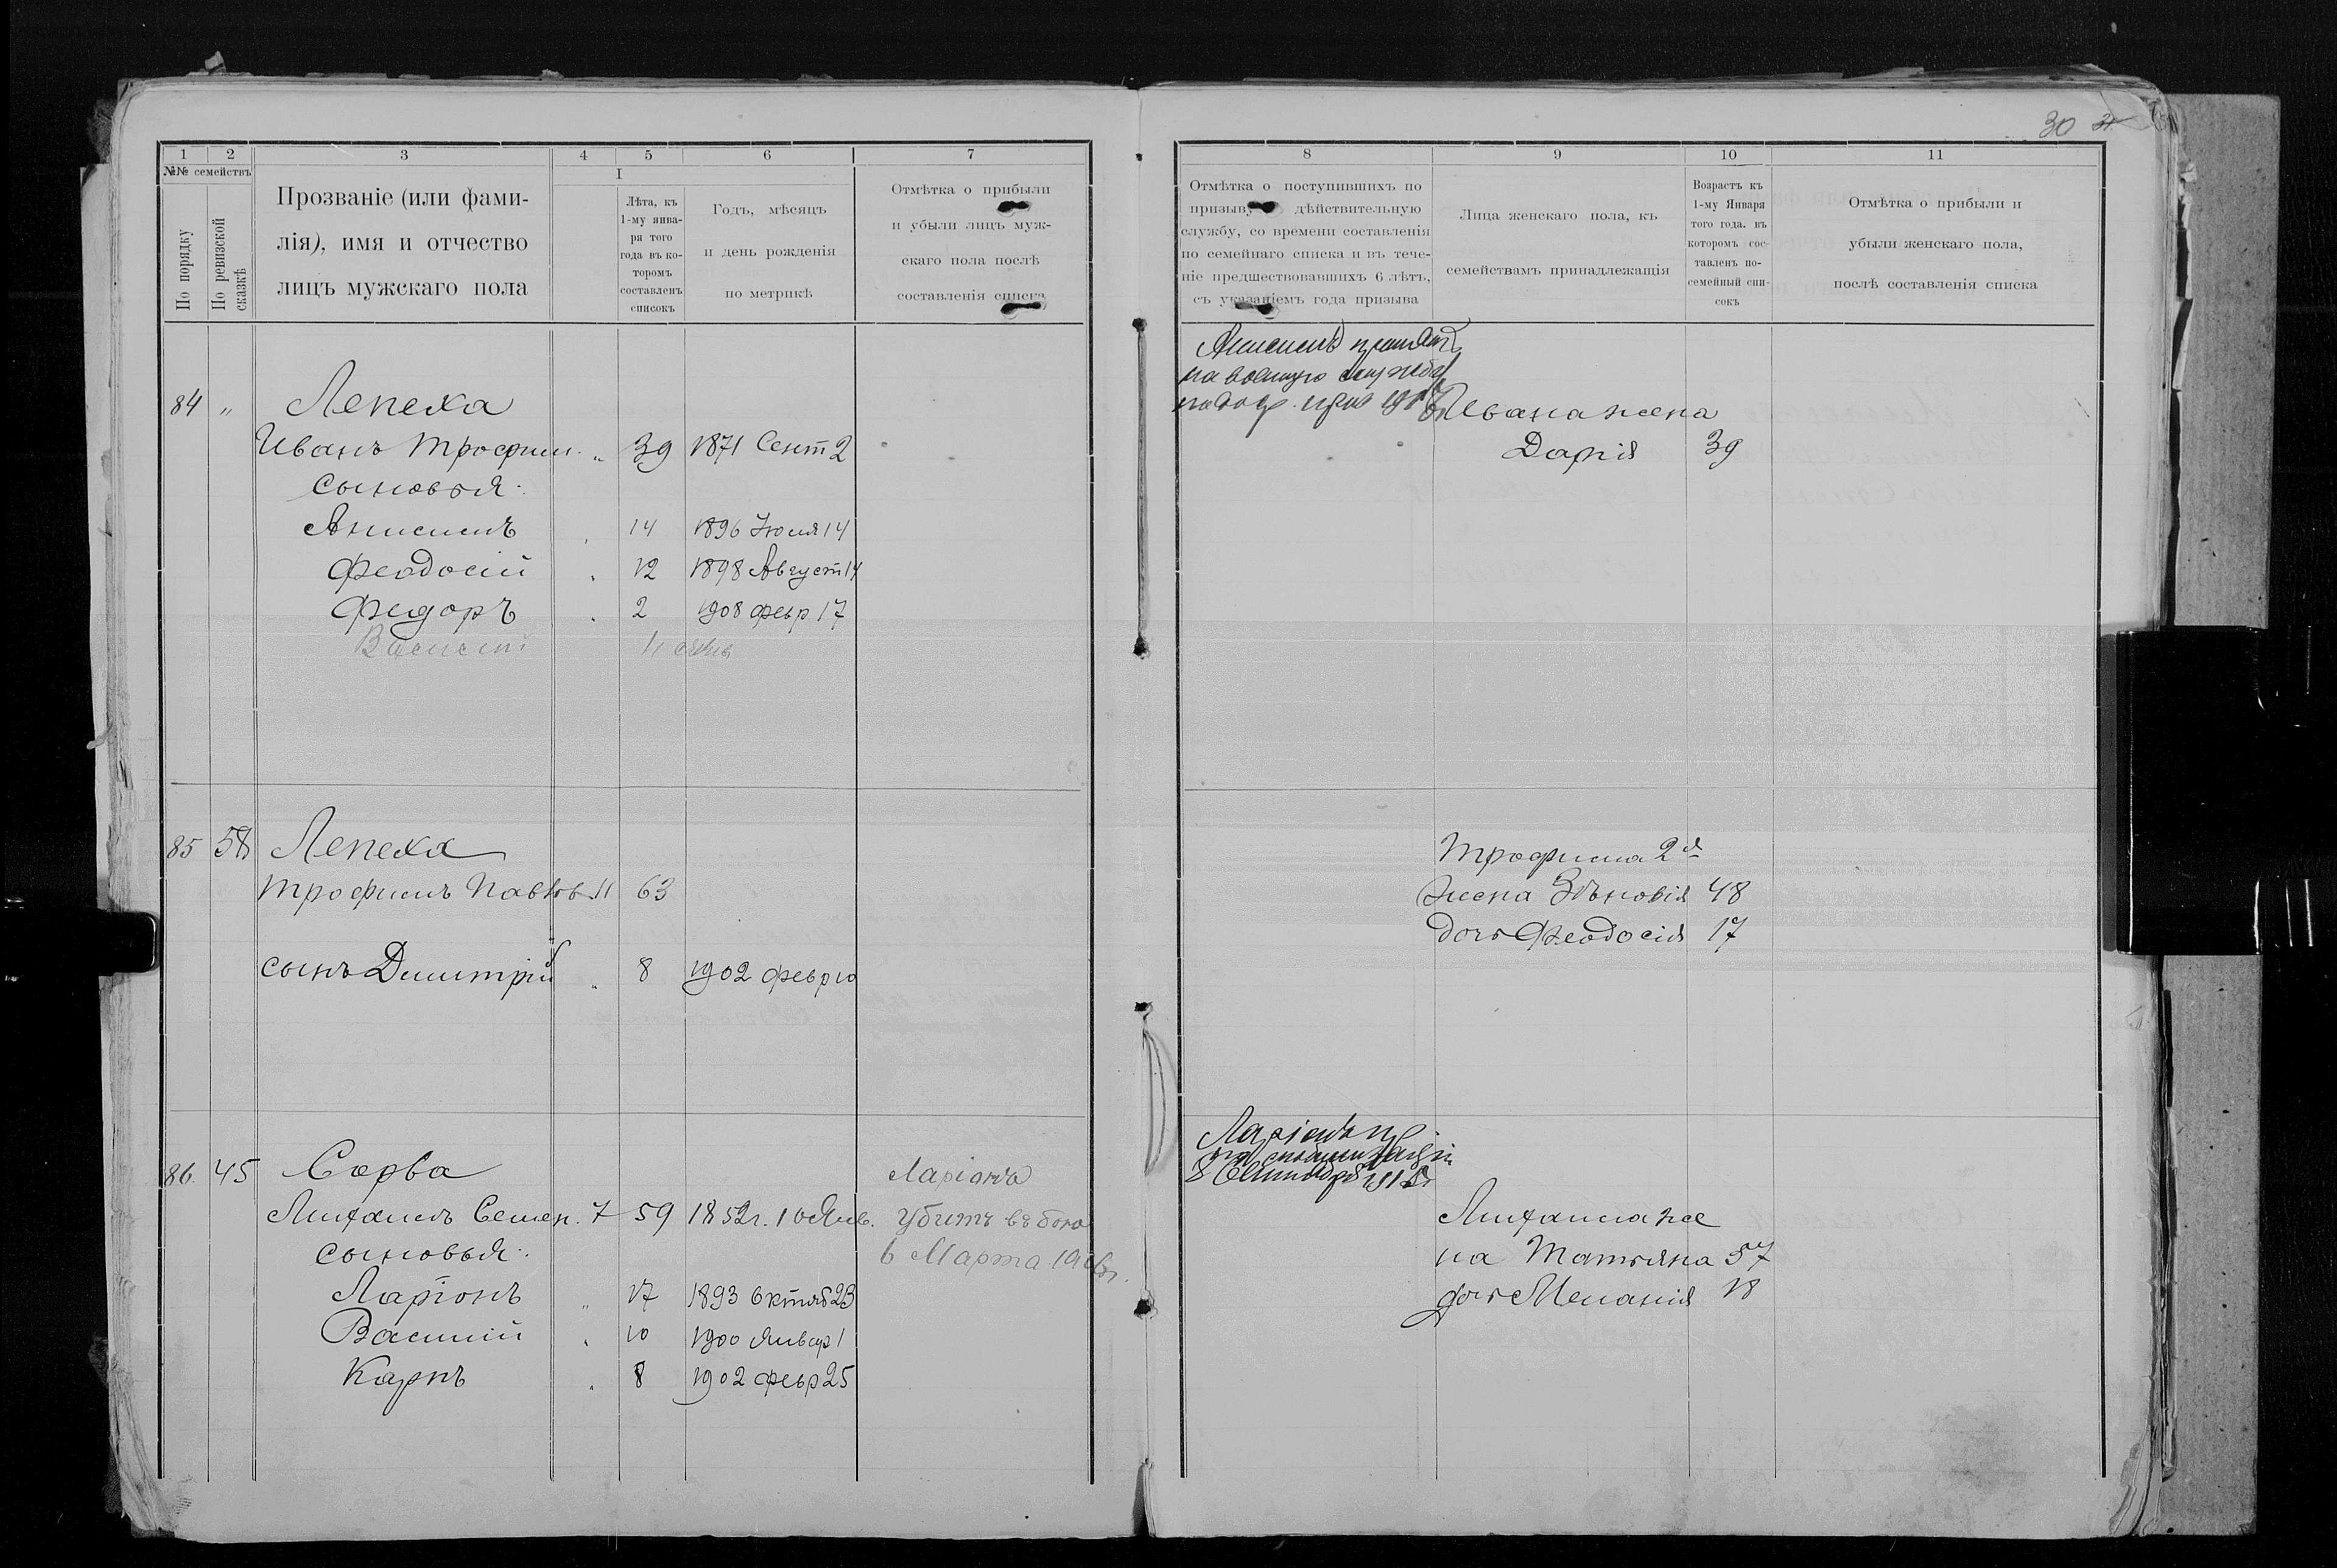 30
1 2 3 4 5 6 7
№№ семействъ
По порядку
По ревизской сказкѣ
Прозваніе (или фами-
лія), имя и отчество
лицъ мужскаго пола
I
Лѣта, къ
1-му янва-
ря того
года въ ко-
торомъ
составленъ
списокъ
Годъ, мѣсяцъ
и день рожденія
по метрикѣ
Отмѣтка о прибыли
и убыли лицъ муж-
скаго пола послѣ
составленія списка
84 " Лепеха
Иванъ Трофим. " 39 1871 Сент 2
сыновья:
Анисимъ 14 1896 Іюля 14
Феодосій 12 1898 Август 14
Федоръ 2 1908 февр 17
85 58 Лепеха
Трофимъ Павлов. 11 63
сынъ Димитрій " 8 1902 февр 10
86. 45 Сорва
Михаилъ Семен. 7 59 1852г. 10 Янв.
сыновья:
Ларіонъ " 17 1893 Октяб 23
Василій 10 1900 Январ 1
Карпъ 8 1902 февр 25
Ларіонъ
убитъ въ бою
6 Марта
8 9 10 11
Отмѣтка о поступившихъ по
призыву дѣйствительную
службу, со времени составленія
по семейнаго списка и въ тече-
ніе предшествовавшихъ 6 лѣтъ,
съ указаніемъ года призыва
Лица женскаго пола, къ
семействамъ принадлежащія
Возрастъ къ
1-му Января
того года. въ
которомъ сос-
тавленъ по-
семейный спи-
сокъ
Отмѣтка о прибыли и
убыли женскаго пола,
послѣ составленія списка
Анисимъ принятъ
на военную службу
Ивана жена
Дарія 39
Трофима 2я
жена Зѣновія 48
дочь Феодосія 17
Ларіонъ
мобилизаціи
8 Сентября
Михаила же
на Татьяна 57
дочь Меланія 18